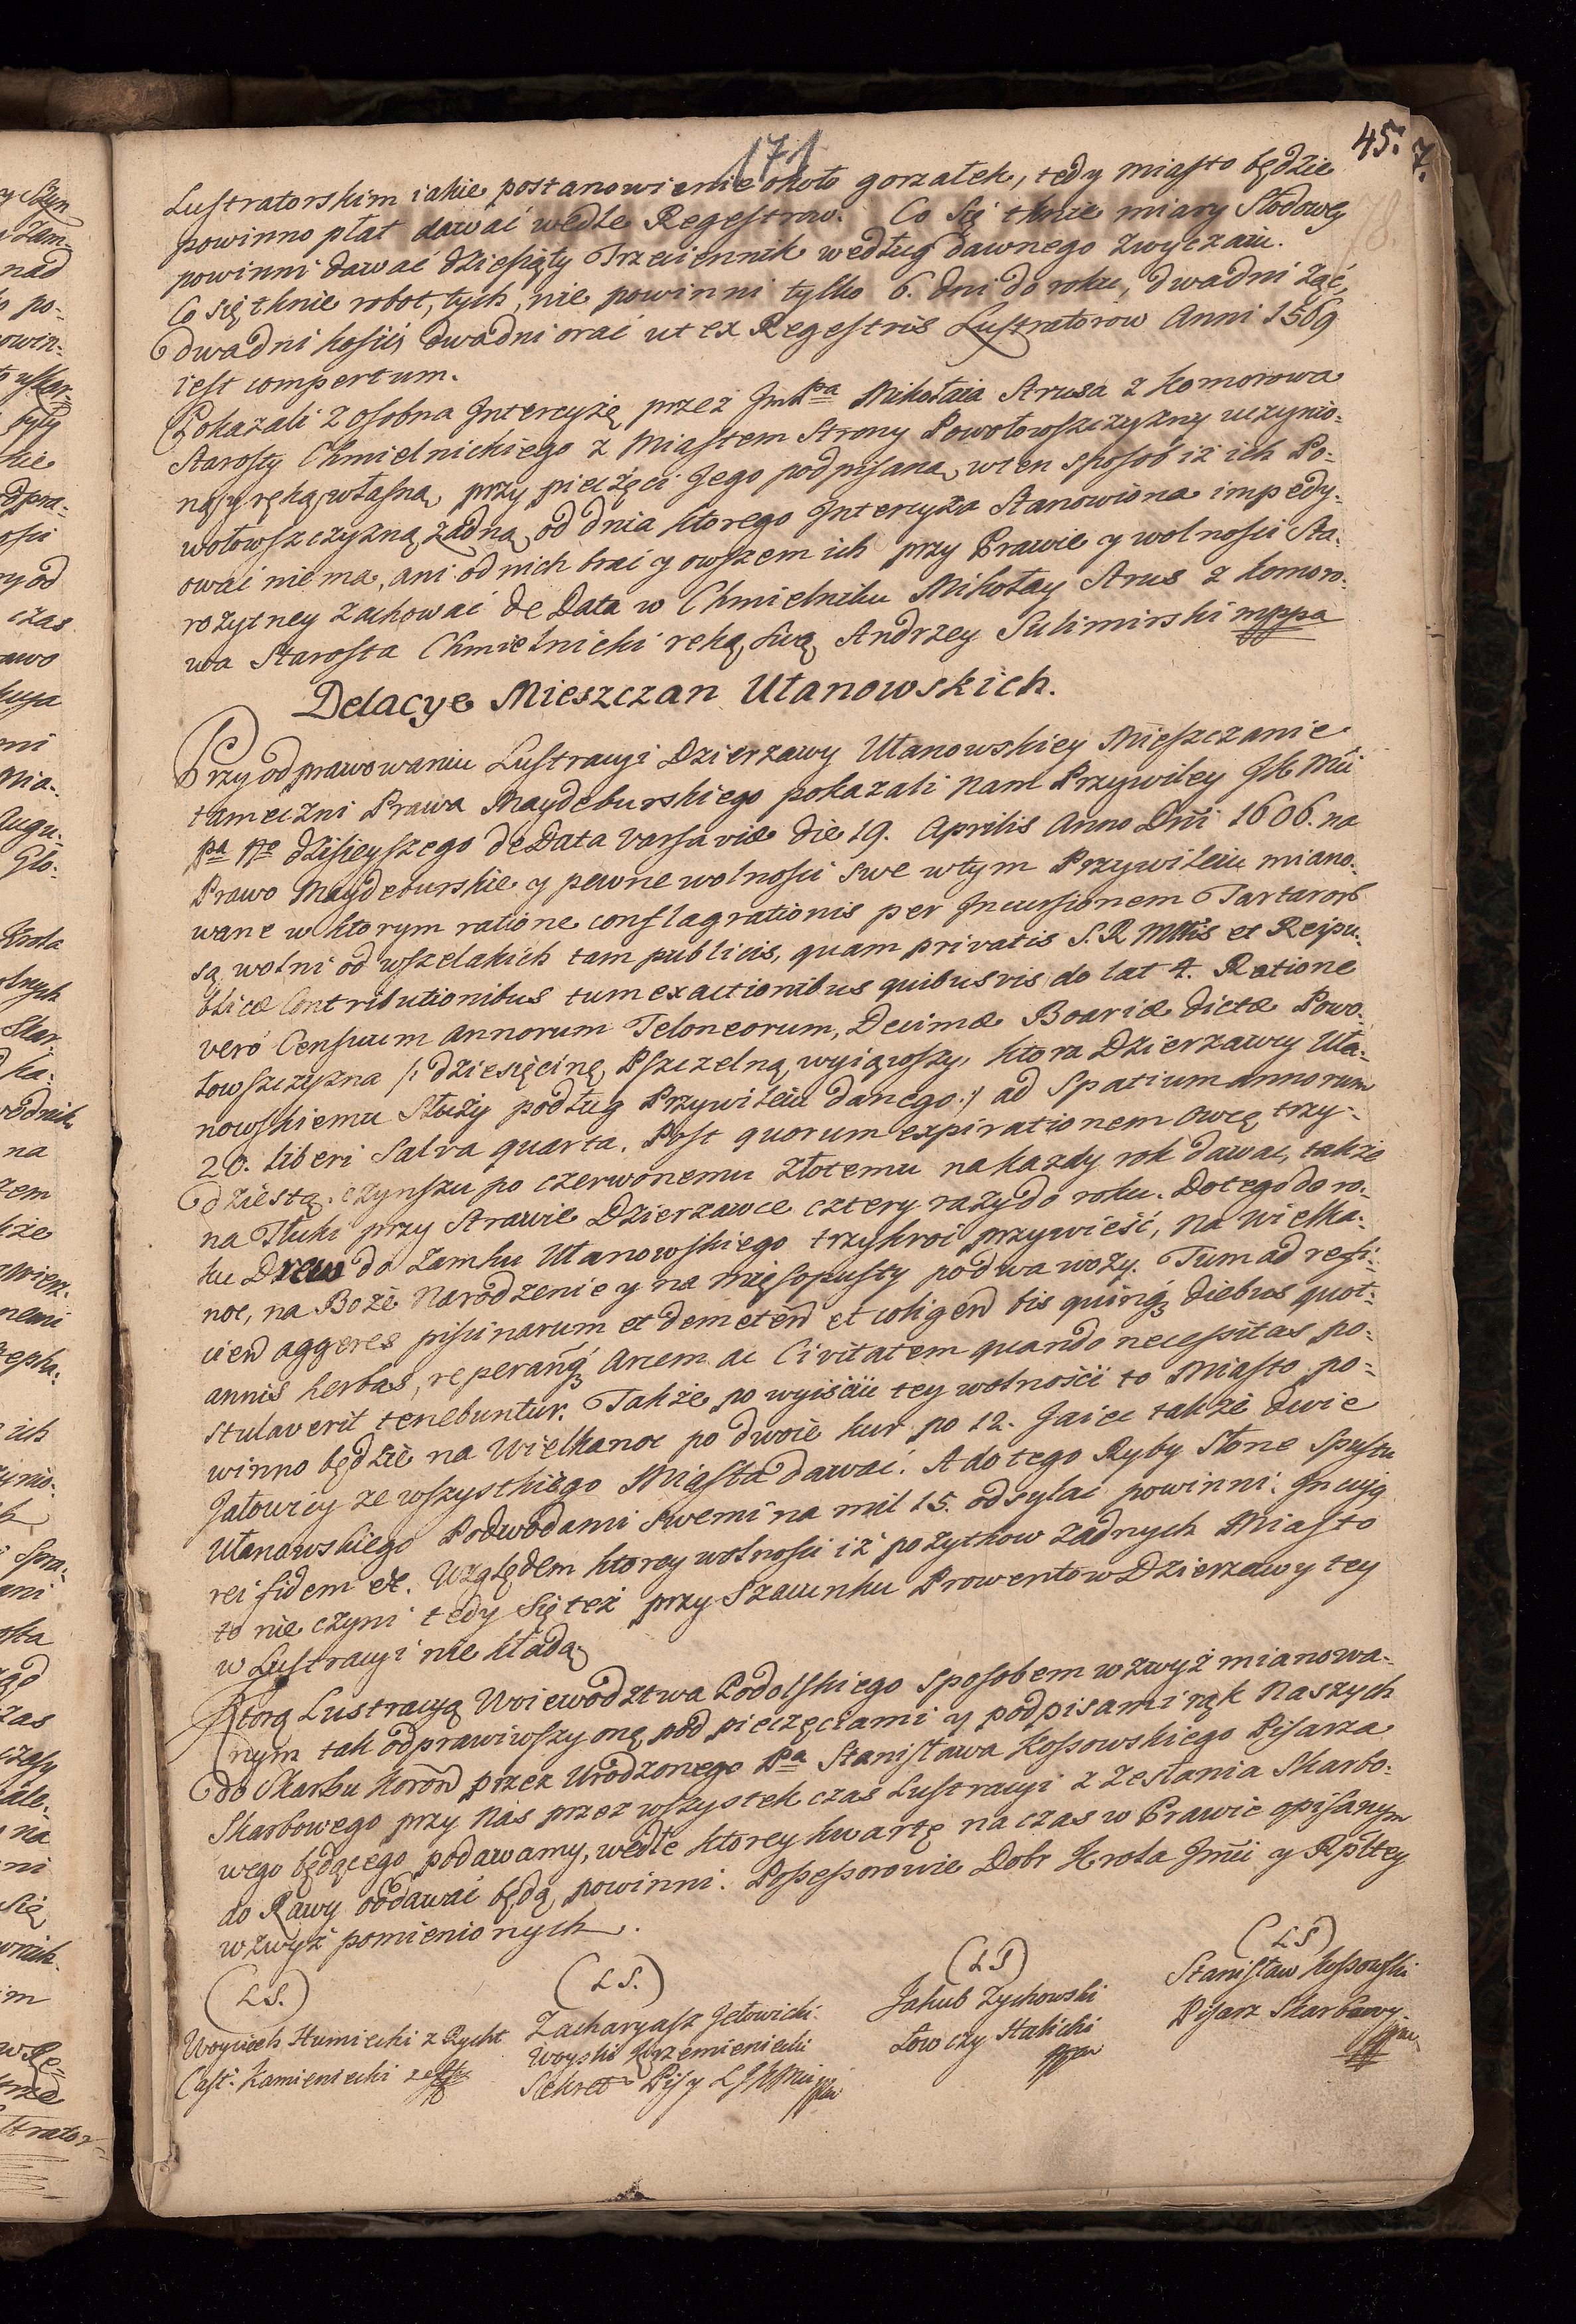 171
45. 7.
Lustratorskim iakie postanowienie około gorzałek, tedy miasto będzie
powinno płat dawać wedle Regestrow. Co się tknie miary Słodowey
powinni dawać dziesiąty Trzeciennik według dawnego zwyczaiu.
Co się tknie robot, tych, nie powinni tylko 6. dni do roku, dwa dni żąć,
dwa dni kosić, dwa dni orać ut ex Regestris Lustratorow Anni 1569
iest compertum.
Pokazali z osobna Intercyżę przez Jmć Pa Mikołaia Strusa z Komorowa
Starosty Chmielnickiego z Miastem Strony Powołowszczyzny uczynio-
ną, y ręką własną, przy pieczęci Jego podpisana, w ten sposób iż ich Po-
wołowszczyzną żadną, od dnia ktorego Intercyża Stanowiona impedy-
owai nie ma, ani od nich brać y owszem ich przy Prawie y wolności Sta-
rożytney zachować de Data w Chmielniku Mikołay Strus z Komoro-
wa Starosta Chmielnicki ręką swą Andrzey Sulimirski mppa
Delacye Mieszczan Ułanowskich.
Przy odprawowaniu Lustracyi Dzierzawy Ułanowskiey Mieszczanie
tameczni Prawa Maydeburskiego pokazali nam Przywiley JK Mci
Pa Ne dzisieyszego de Data Varsaviæ die 19. Aprilis Anno Dni 1606. na
Prawo Maydeburskie y pewne wolności swe w tym Przywileiu miano-
wane w ktorym ratione conflagrationis per Incursionem Tartaror
są wolni od wszelakich tam publicis, quam privatis S. R. Mttis et Reipu-
blicæ Contributionibus tum exactionibus quibusvis do lat 4. Ratione
verò Censuum Annorum Teloneorum, Decimæ Boariæ dictæ Powo-
łowszczyzna /: dziesięcinę Pszczelną wyiąwszy, ktora Dzierzawcy Uła-
nowskiemu Służy podług Przywileiu danego :/ ad Spatium annorum
20. liberi Salva quarta. Post quorum expirationem owcę trzy-
dziestą, czynszu po czerwonemu złotemu na każdy rok dawac, także
na Tłuki przy Strawie Dzierzawce cztery razy do roku. Do tego do ro-
ku Drew do Zamku Ułanowskiego trzykroć przywieść, na Wielka-
noc, na Boże Narodzenie y na mięsopusty po dwa wozy. Tum ad refi-
ciend aggeres piscinarum et demetend et coligend bis quinq diebus quot-
annis herbas, reperanq Arcem ac Civitatem quando necessitas po-
stulaverit tenebuntur. Także po wyiściu tey wolności to Miasto po-
winno będzie na Wielkanoc po dwoie kur po 12. Jaiec także dwie
Jałowicy ze wszystkiego Miasta dawać. A do tego Ryby Słone Spustu
Ułanowskiego Podwodami swemi na mil 15. odsyłać powinni. In cujq
rei fidem etc. Względem ktorey wolności iż pożytkow żadnych Miasto
to nie czyni tedy się też przy Szacunku Prowentow Dzierzawy tey
w Lustracyi nie kładą
Ktorą Lustracyą Woiewodztwa Podolskiego sposobem wzwyż mianowa-
nym tak odprawiwszy onę pod pieczęciami y podpisami rąk naszych
do Skarbu Koron przez Urodzonego Pa Stanisława Kossowskiego Pisarza
Skarbowego przy nas przez wszystek czas Lustracyi z Zesłania Skarbo-
wego będącego podawamy, wedle ktorey kwartę na czas w Prawie opisanym
do Rawy oddawać będą powinni. Possessorowie Dobr Krola Jmci y Rpltey
wzwyż pomienionych.
(LS.) (LS.) (LS) (LS)
Woyciech Humiecki z Rycht Zacharyasz Jełowicki Jakub Zychowski Stanisław Kossowski
Cast. Kamieniecki Woyski Krzemieniecki Łowczy Halicki Pisarz Skarbowy
Sekret Pis y L JKMci mp